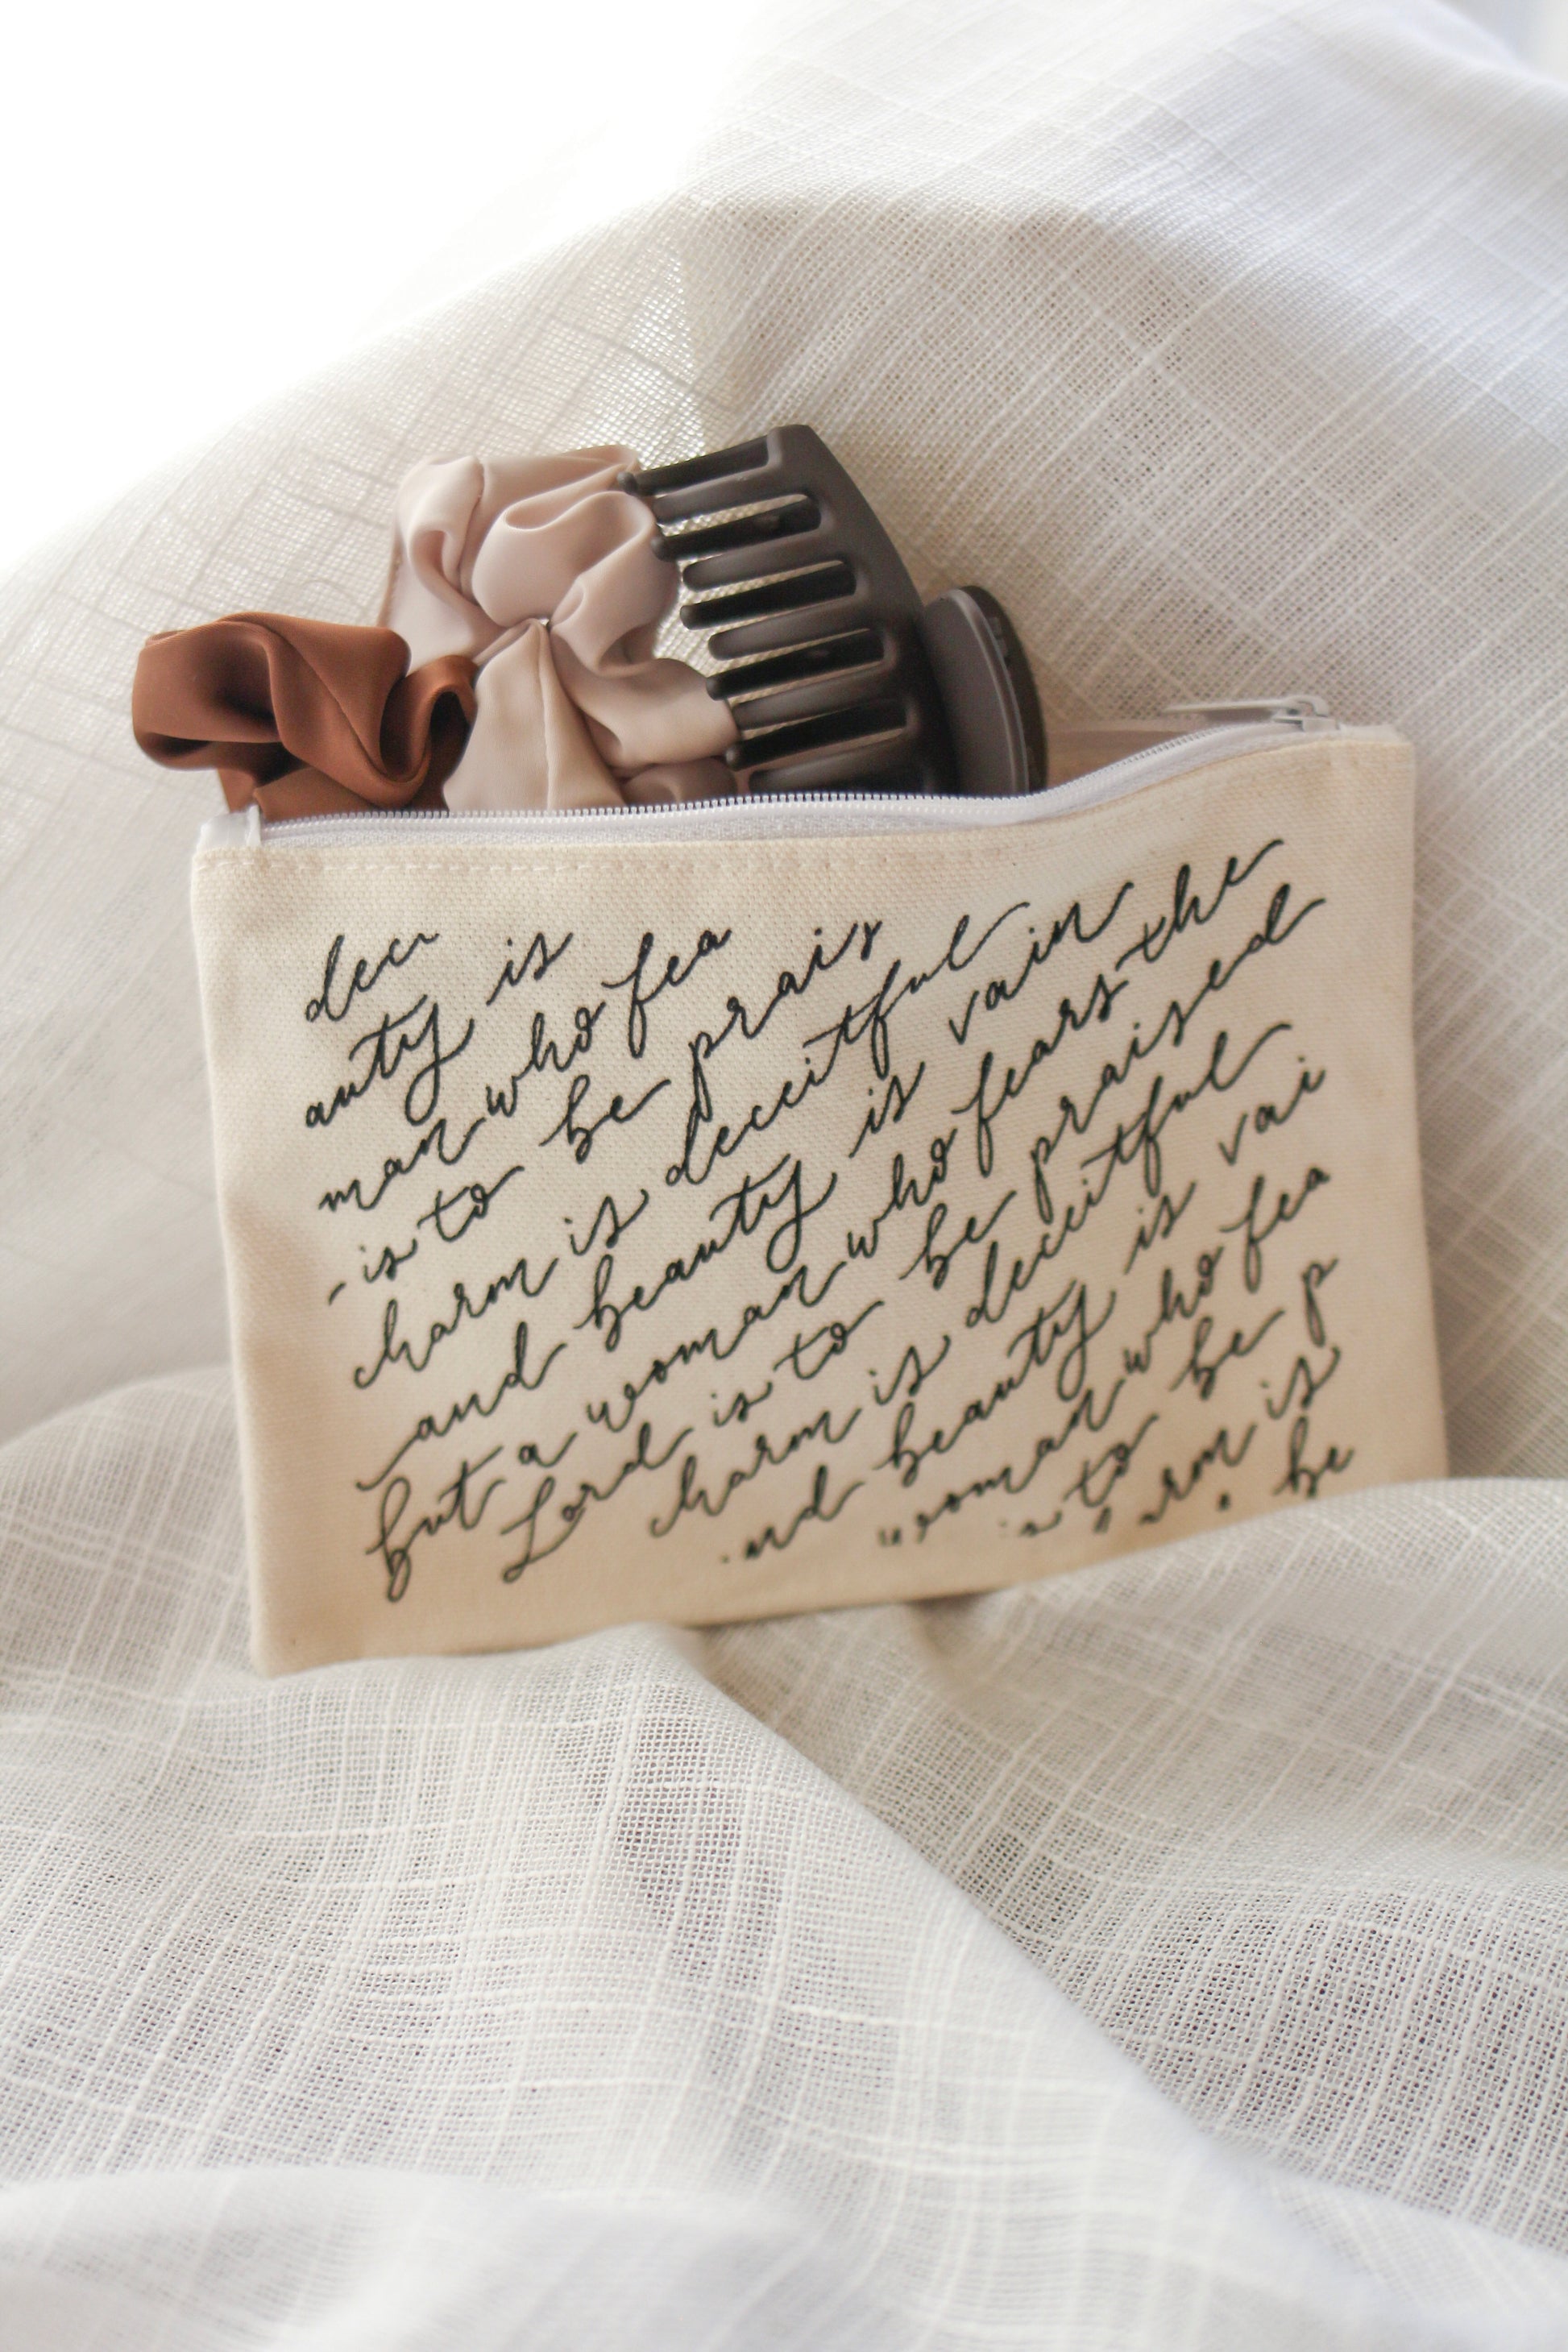 dec
auty is
man who fea
is to be prais
charm is deceitful
and beauty is vain
but a woman who fears the
Lord is to be praised
charm is deceitful
nd beauty is vai
woman who fea
to be p
rm is
be